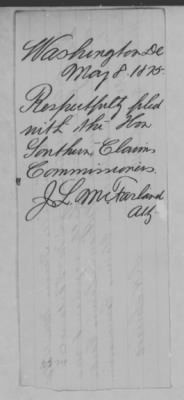 Washington Dc
May 8 1875
Respectfully filed
with the Hon
Southern Claims
Commissioners.
J. L. McFarland
Atty